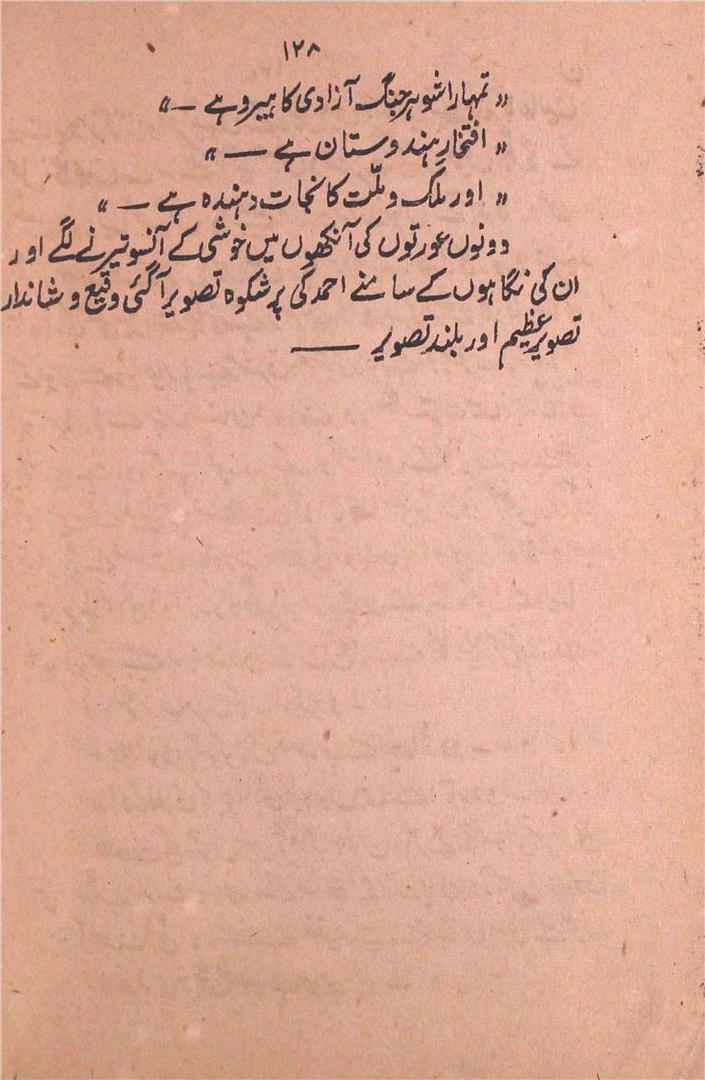 ۱۲۸
"تمہارا شوہر جنگ آزادی کا ہیرو ہے ــــ"
"افتخارِ ہندوستان ہے ــــ"
"اور ملک و ملّت کا نجات دہندہ ہے ــــ"
دونوں عورتوں کی آنکھوں میں خوشی کے آنسو تیرنے لگے اور
ان کی نگاہوں کے سامنے احمد کی پر شکوہ تصویر آگئی وقیع و شاندار
تصویر عظیم اور بلند تصویر ــــــــ